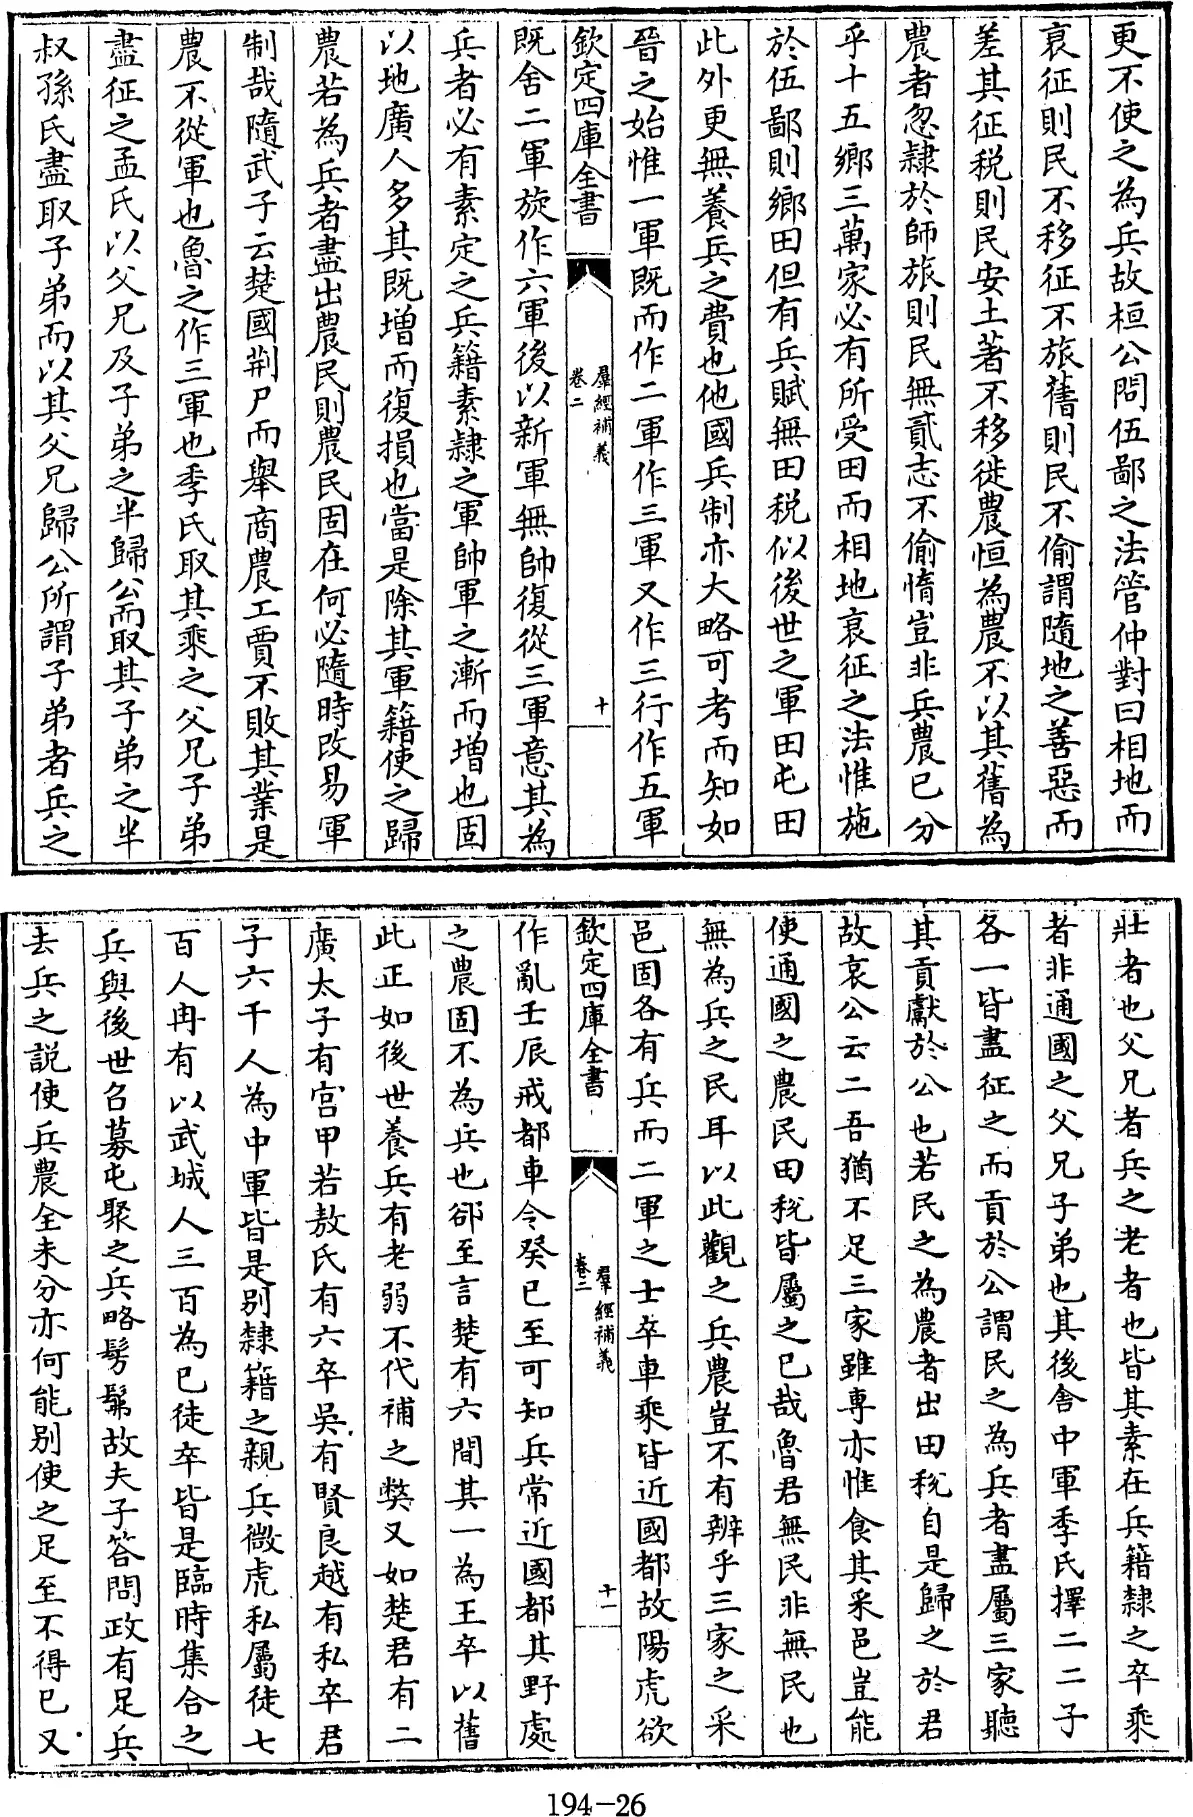 更不使之為兵故桓公問伍鄙之法管仲對曰相地而
衰征則民不移征不旅舊則民不偷謂隨地之善惡而
差其征稅則民安土著不移徙農恒為農不以其舊為
農者忽隸於師旅則民無貳志不偷惰豈非兵農已分
乎十五鄉三萬家必有所受田而相地衰征之法惟施
於伍鄙則鄉田但有兵賦無田稅似後世之軍田屯田
此外更無養兵之費也他國兵制亦大略可考而知如
晉之始惟一軍既而作二軍作三軍又作三行作五軍
欽定四庫全書
羣經補義
卷二
十
既舍二軍旋作六軍後以新軍無帥復從三軍意其為
兵者必有素定之兵籍素隸之軍帥軍之漸而增也固
以地廣人多其既增而復損也當是除其軍籍使之歸
農若為兵者盡出農民則農民固在何必隨時改易軍
制哉隨武子云楚國荆尸而舉商農工賈不敗其業是
農不從軍也魯之作三軍也季氏取其乘之父兄子弟
盡征之孟氏以父兄及子弟之半歸公而取其子弟之半
叔孫氏盡取子弟而以其父兄歸公所謂子弟者兵之
壯者也父兄者兵之老者也皆其素在兵籍隸之卒乘
者非通國之父兄子弟也其後舍中軍季氏擇二二子
各一皆盡征之而貢於公謂民之為兵者盡屬三家聽
其貢獻於公也若民之為農者出田稅自是歸之於君
故哀公云二吾猶不足三家雖專亦惟食其采邑豈能
使通國之農民田稅皆屬之已哉魯君無民非無民也
無為兵之民耳以此觀之兵農豈不有辨乎三家之采
邑固各有兵而二軍之士卒車乘皆近國都故陽虎欲
欽定四庫全書
羣經補義
卷二
十一
作亂壬辰戒都車令癸巳至可知兵常近國都其野處
之農固不為兵也郤至言楚有六間其一為王卒以舊
此正如後世養兵有老弱不代補之弊又如楚君有二
廣太子有宮甲若敖氏有六卒吳有賢良越有私卒君
子六千人為中軍皆是别隸籍之親兵微虎私屬徒七
百人冉有以武城人三百為已徒卒皆是臨時集合之
兵與後世召募屯聚之兵略髣髴故夫子答問政有足兵
去兵之說使兵農全未分亦何能别使之足至不得已又
194-26